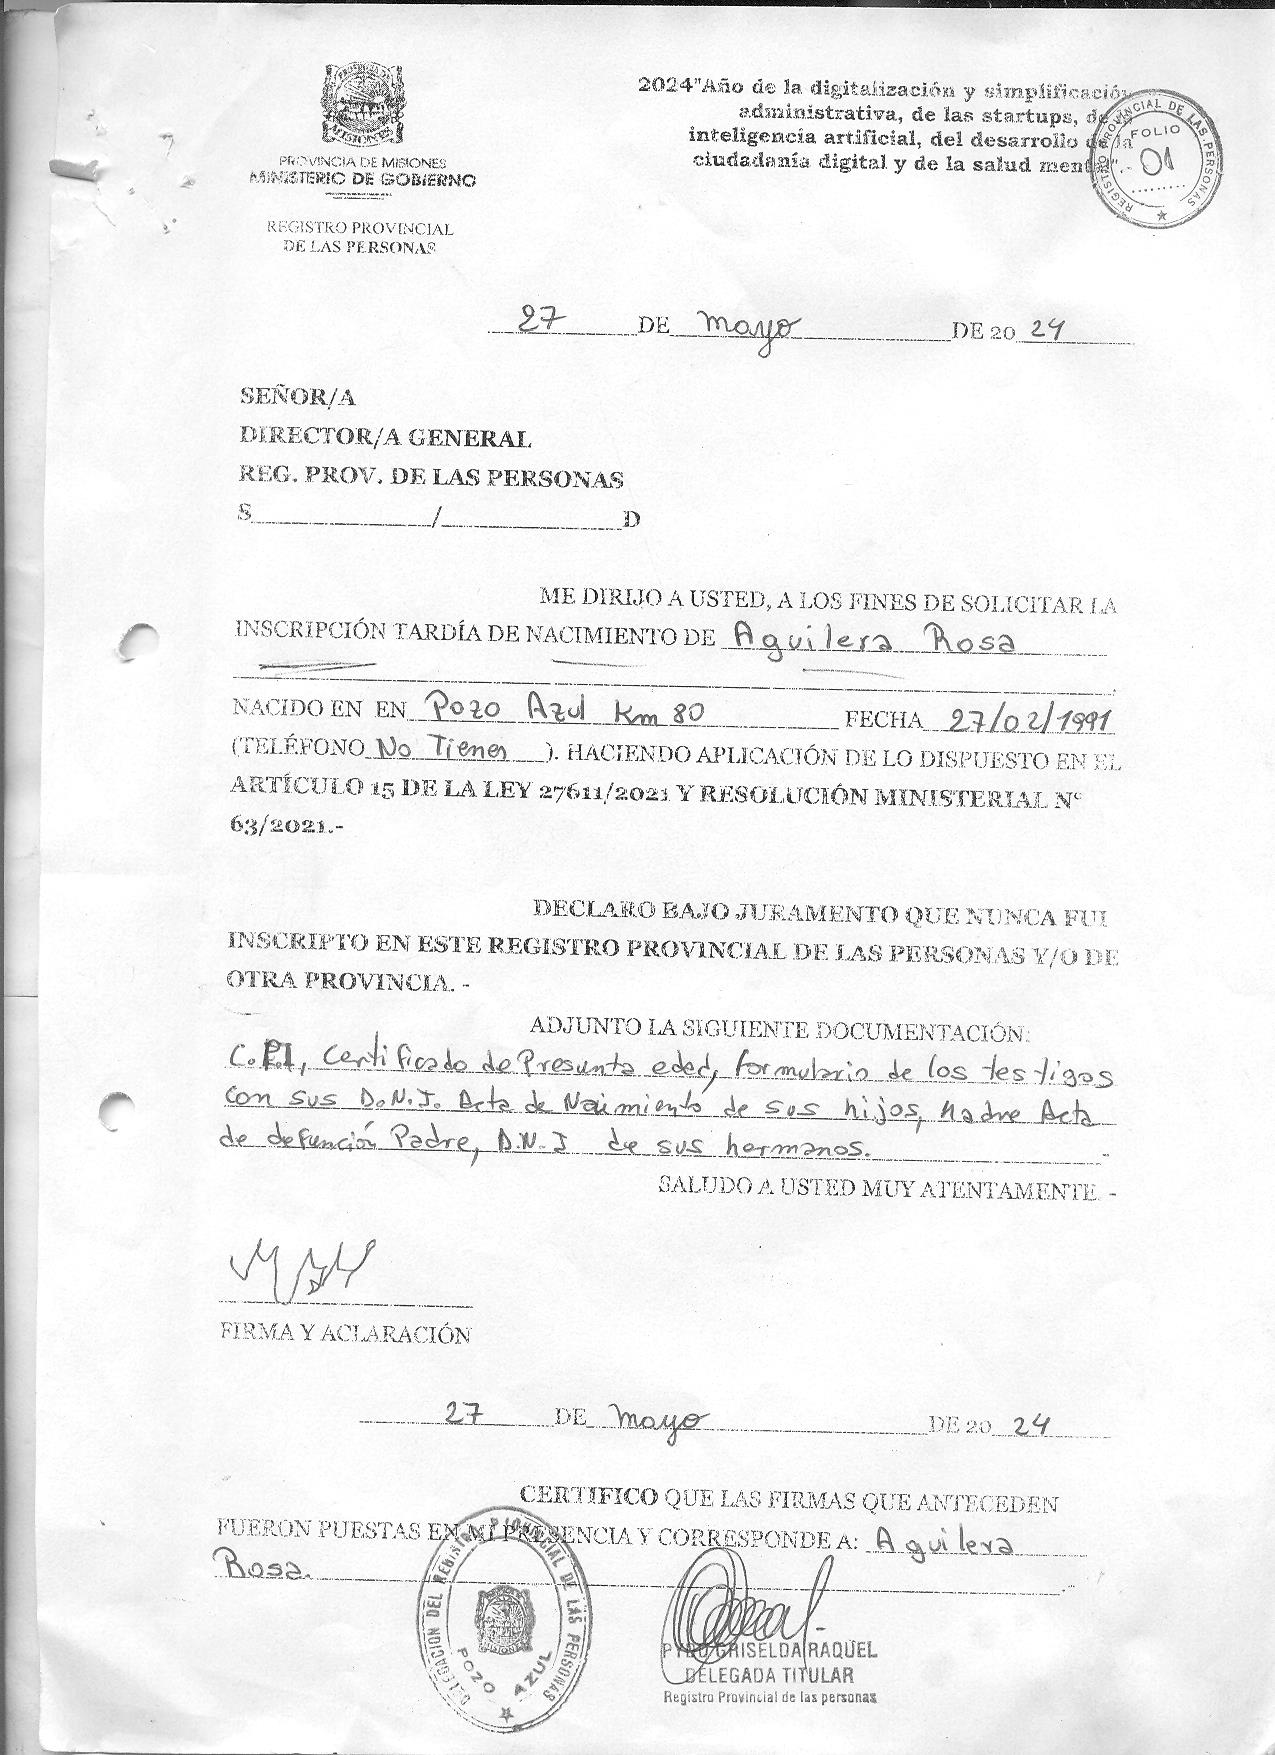 2024"Año de la digitalización y simplificación
administrativa, de las startups, de
inteligencia artificial, del desarrollo de la
ciudadanía digital y de la salud mental".-
REGISTRO PROVINCIAL DE LAS PERSONAS
FOLIO
01
PROVINCIA DE MISIONES
MINISTERIO DE GOBIERNO
REGISTRO PROVINCIAL
DE LAS PERSONAS
27 DE mayo DE 20 24
SEÑOR/A
DIRECTOR/A GENERAL
REG. PROV. DE LAS PERSONAS
S / D
ME DIRIJO A USTED, A LOS FINES DE SOLICITAR LA
INSCRIPCIÓN TARDÍA DE NACIMIENTO DE Aguilera Rosa
NACIDO EN EN Pozo Azul Km 80 FECHA 27/02/1991
(TELÉFONO No Tienen ). HACIENDO APLICACIÓN DE LO DISPUESTO EN EL
ARTÍCULO 15 DE LA LEY 27611/2021 Y RESOLUCIÓN MINISTERIAL N°
63/2021.-
DECLARO BAJO JURAMENTO QUE NUNCA FUI
INSCRIPTO EN ESTE REGISTRO PROVINCIAL DE LAS PERSONAS Y/O DE
OTRA PROVINCIA. -
ADJUNTO LA SIGUIENTE DOCUMENTACIÓN:
C.P.I, Certificado de Presunta eded, formulario de los testigos
con sus D.N.I. Acta de Naimiento de sus hijos, Madre Acta
de defunción Padre, D.N.I de sus hermanos. -
SALUDO A USTED MUY ATENTAMENTE. -
FIRMA Y ACLARACIÓN
27 DE mayo DE 20 24
CERTIFICO QUE LAS FIRMAS QUE ANTECEDEN
FUERON PUESTAS EN MI PRESENCIA Y CORRESPONDE A: Aguilera
Rosa. .-
DELEGACION DEL REGISTRO PROVINCIAL DE LAS PERSONAS
POZO AZUL
GRISELDA RAQUEL
DELEGADA TITULAR
Registro Provincial de las personas